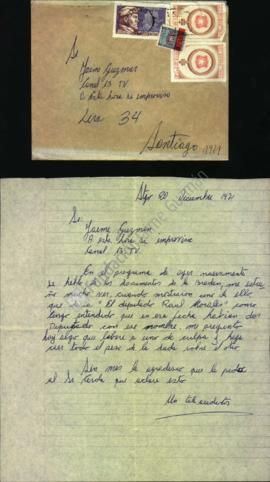 Sr
Jaime Guzman
Canal 13 TV
A esta hora se improvisa
Lira 34
Santiago
Stgo 20 Diciembre 1971
Sr
Jaime Guzmán
A esta hora se improvisa
Canal 13
En el programa de ayer nuevamente
se habló los documentos de la Braden, me
mucho ver, cuando mostraron uno de ellos
que decía "El diputado Raul Morales" como
tengo entendido que en esa fecha habían dos
Diputados con ese nombre, me pregunto
hay algo que libere a uno de culpa y haga
caer todo el peso de la duda sobre el otro
Sin más le agradecería que le pida
al Sr que aclare esto
Un telespectador